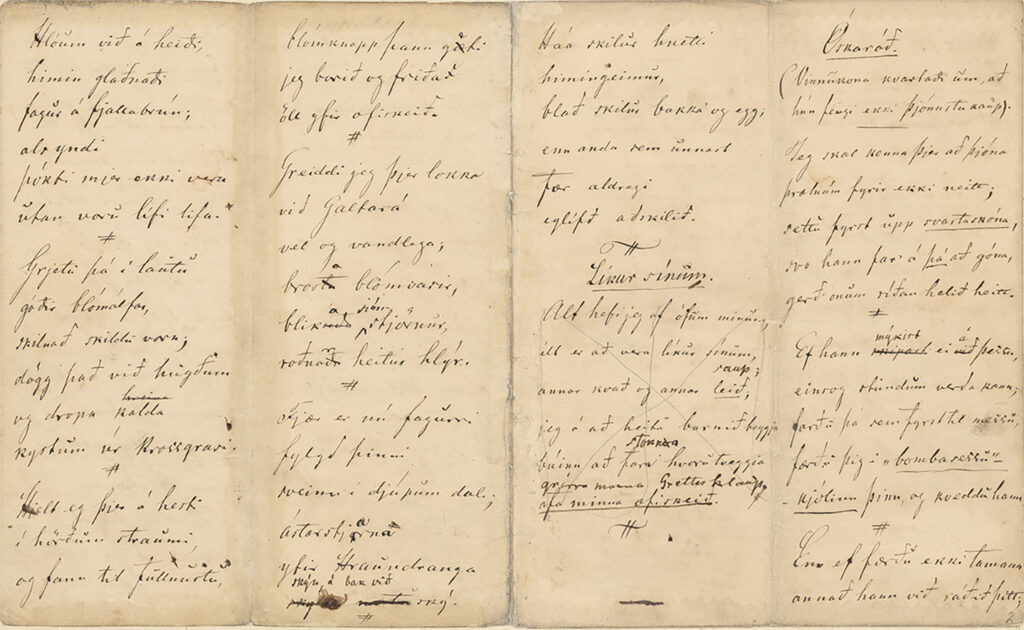 Hlóum við á heiði,
himin glaðnaði
fagur á fjallabrún;
als yndi
þókti mjer ekki vera
utan voru lífi lifa.
#
Grjetu þá í lautu
góðir blómálfar,
skilnað skildu vorn;
dögg það við hugðum
og dropa kalda
kystum úr krossgrasi.
#
Hjelt eg þjer á hesti
í hörðum straumi,
og fann til fullnustu,
blómknapp þann gæti
jeg borið og friðað
öll yfir æfiskeið.
#
Greiddi jeg þjer lokka
við Galtará
vel og vandlega;
brosa blómvarir,
blika sjón stjörnur,
roðnar heitur hlýr.
#
Fjær er nú fagurri
fylgð þinni
sveinn í djúpum dal;
ástarstjarna
yfir Hraundranga
skýn á bak við
ský.
#
Háa skilur hnetti
himingeimur,
blað skilur bakka og egg;
enn anda sem unnast
fær aldregi
eylífð aðskilið.
#
Líkur sínum.
Alt hefi jeg af öfum mínum,
ilt er að vera líkur sínum,
raup;
annar kvað og annar leið,
jeg á að heita barnið beggja
stökkva
búinn að fara hvorutveggja
Grettis hlaup
afa minna æfiskeið.
#
Óskaráð.
(Vinnukona kvartaði um, að
hún fengi ekki þjónustukaup).
Jeg skal kenna þjer að þjóna
þrælnum fyrir ekki neitt;
settu fyrst upp svartaskóna,
svo hann fari á þá að góna,
gerð onum síðan helið heitt.
#
mýkist
Ef hann ei á þessu,
einsog stundum verða kann,
farðu þá sem fyrst til messu,
færðu þig í "bombasessu"-
-kjólinn þinn, og kveddu hann
#
Enn ef færðu ekki tamann
annað hann við ráðið þitt;
2